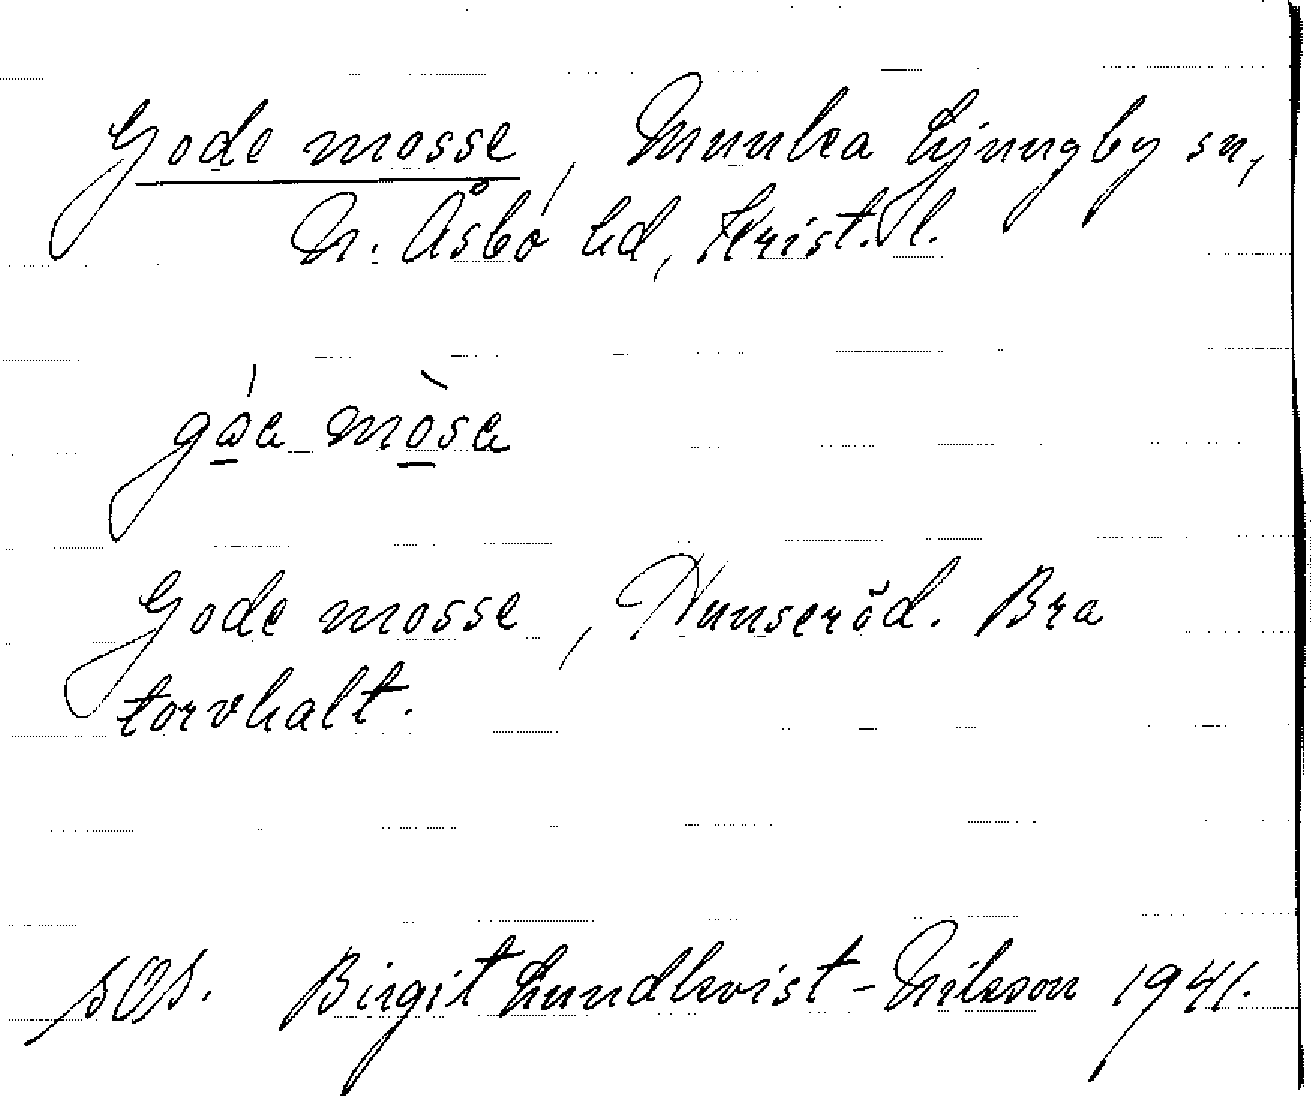 Gode mosse, Munka Ljungby sn,
N. Åsbo hd, Krist. l.
góe mòse
Gode mosse, Hunseröd. Bra
torvhalt.
SOS. Birgit Lundkvist-Nilsson 1941.